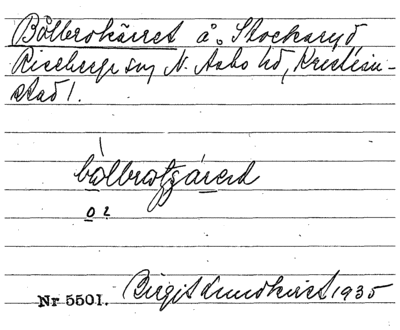 Bålbrokärret å. Stockaryd
Riseberga sn, N. Åsbo hd, Kristian-
stad l.
bålbrotgárerd
o 2
Nr 5501. Birgit Lundkvist 1935